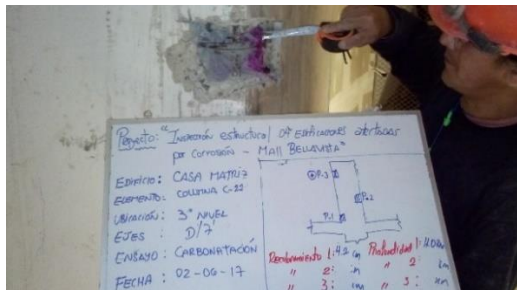 Proyecto: "Inspección estructural de edificaciones afectadas
por corrosión - MALL BELLAVISTA"
EDIFICIO: CASA MATRIZ
ELEMENTO: COLUMNA C-22
UBICACIÓN: 3° NIVEL
EJES : D/7'
ENSAYO : CARBONATACIÓN
FECHA : 02-06-17
P-3
P-2
P-1
Recubrimiento 1: 4.2 cm
" 2: cm
" 3: cm
Profundidad 1:
" 2: cm
" 3: cm